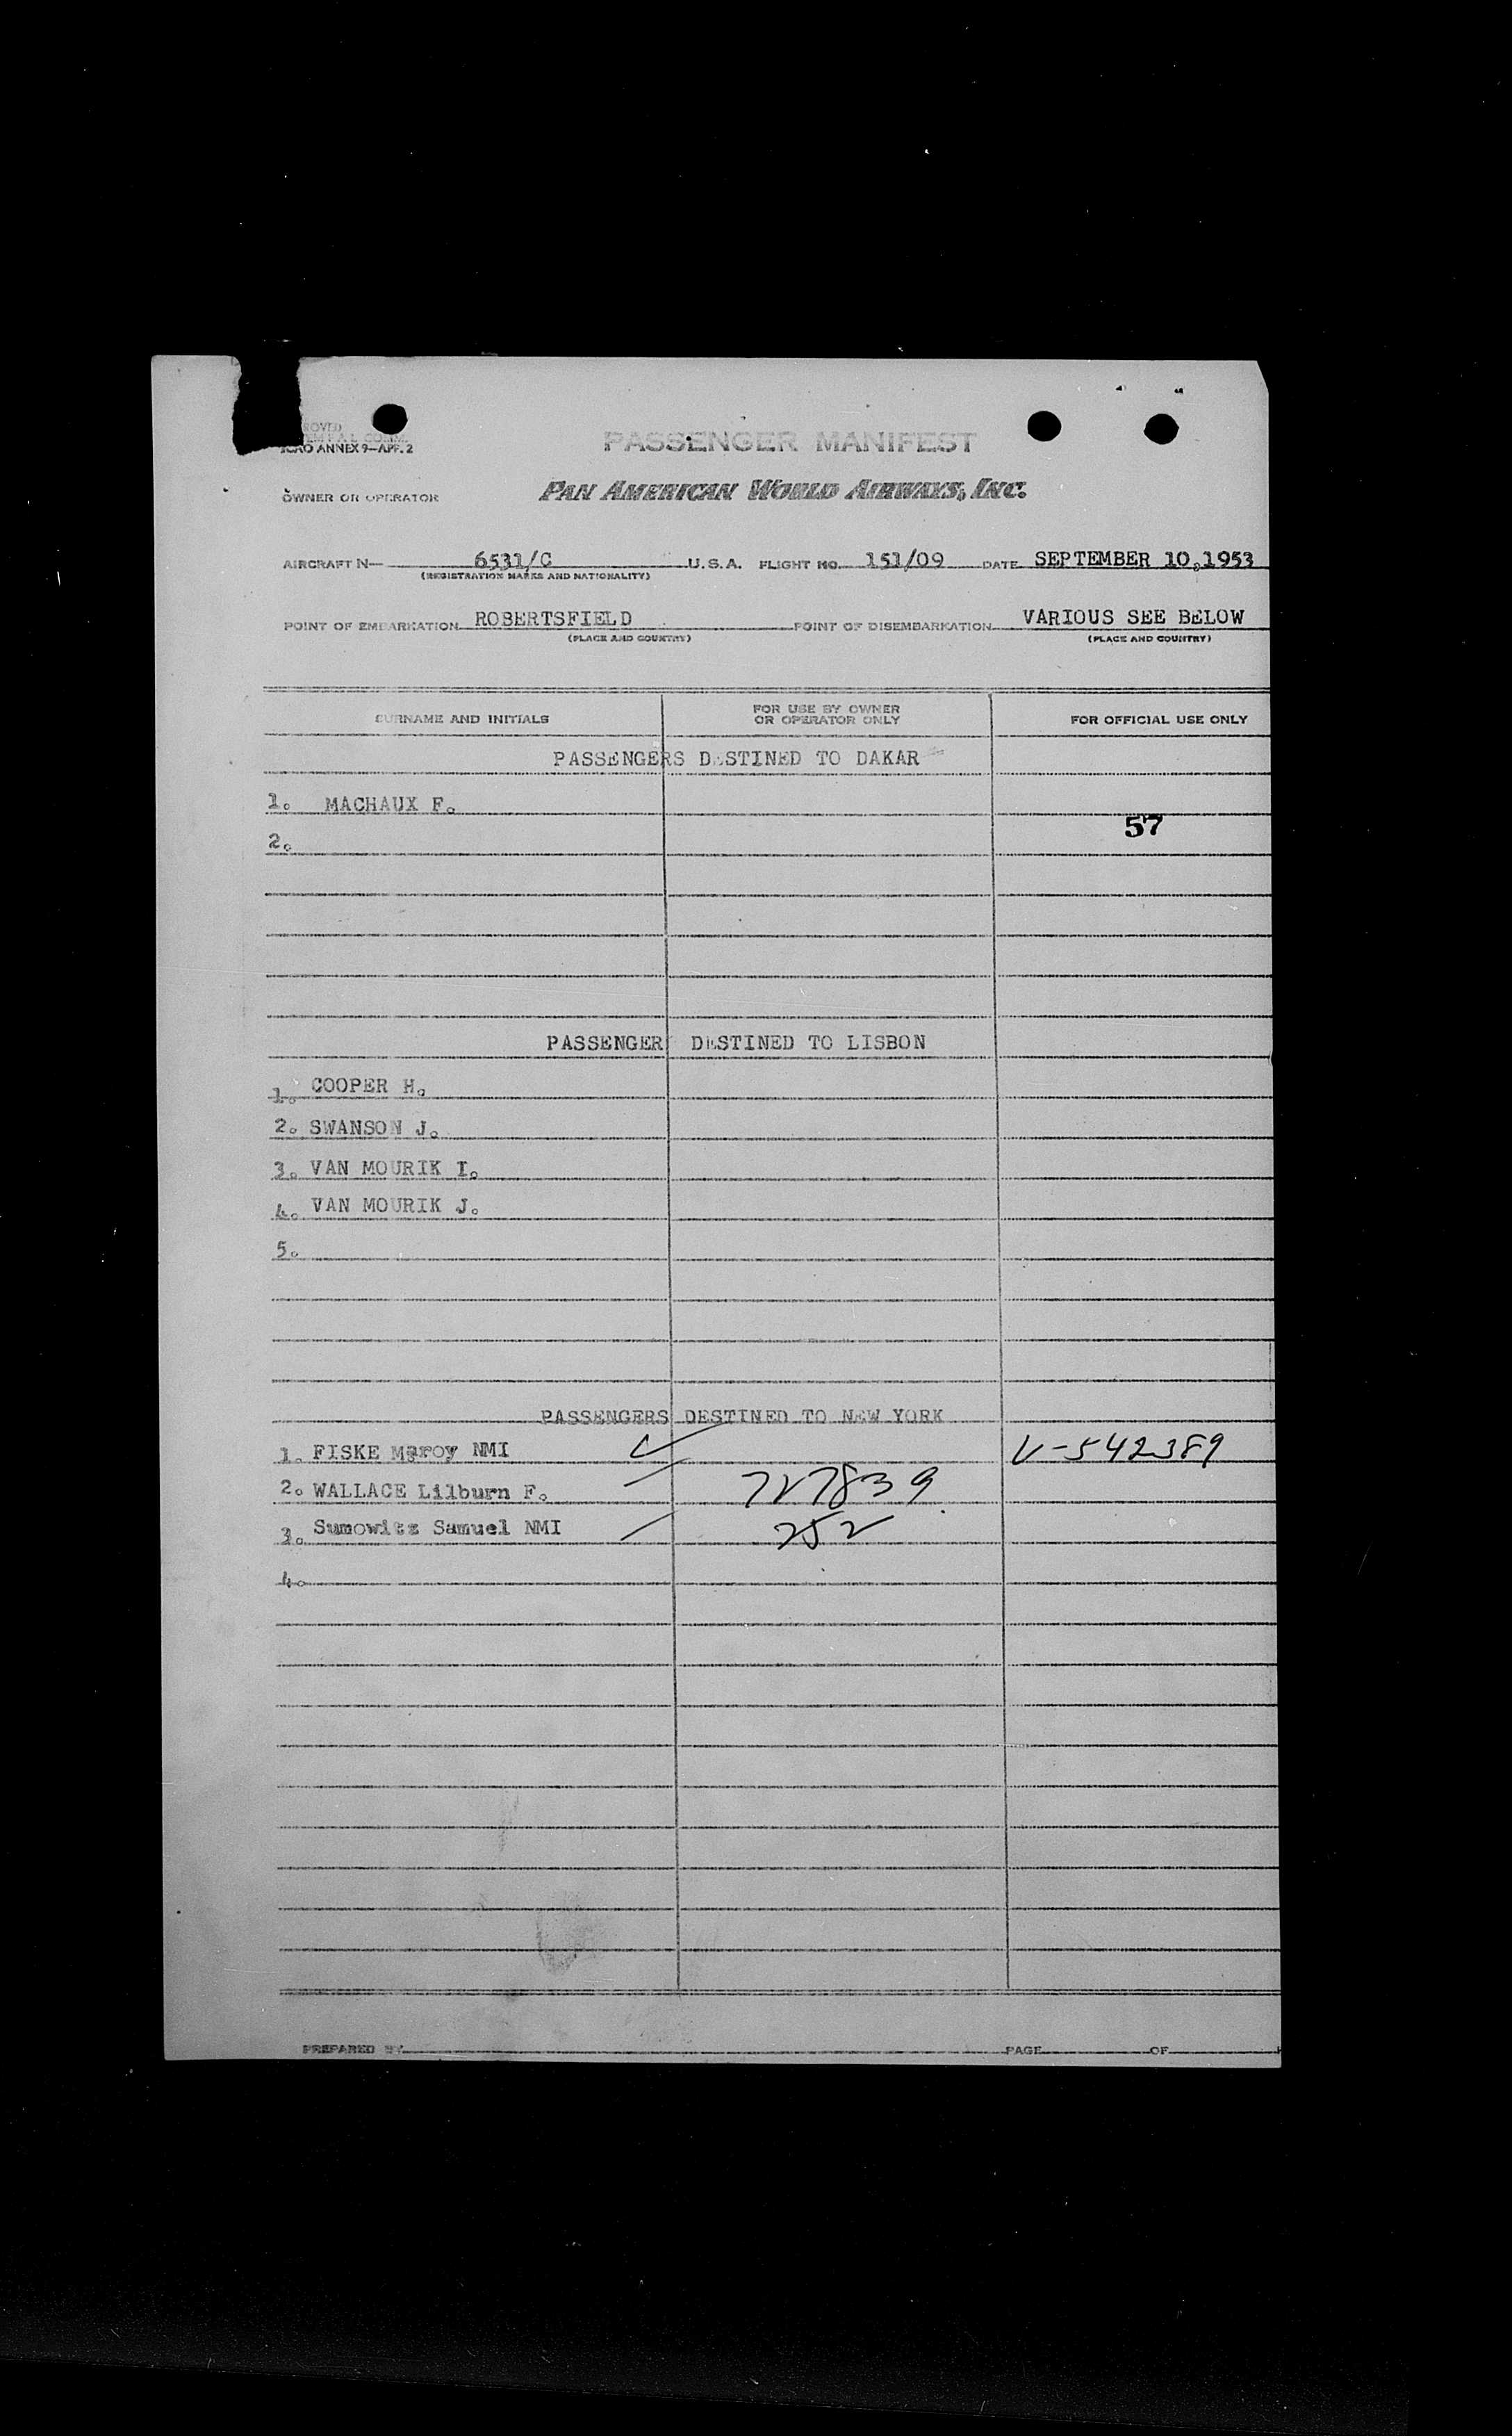 ICAO ANNEX 9—APP. 2
PASSENGER MANIFEST
OWNER OR OPERATOR PAN AMERICAN WORLD AIRWAYS, INC.
AIRCRAFT N— 6531/C U.S.A. FLIGHT NO. 151/09 DATE SEPTEMBER 10,1953
(REGISTRATION MARKS AND NATIONALITY)
POINT OF EMBARKATION ROBERTSFIELD POINT OF DISEMBARKATION VARIOUS SEE BELOW
(PLACE AND COUNTRY) (PLACE AND COUNTRY)
SURNAME AND INITIALS FOR USE BY OWNER OR OPERATOR ONLY FOR OFFICIAL USE ONLY
PASSENGERS DESTINED TO DAKAR
1. MACHAUX F.
57
2.
PASSENGER DESTINED TO LISBON
1. COOPER H.
2. SWANSON J.
3. VAN MOURIK I.
4. VAN MOURIK J.
5.
PASSENGERS DESTINED TO NEW YORK
1. FISKE Maroy NMI V-542389
2. WALLACE Lilburn F. 727839
3. Sumowitz Samuel NMI 252
4.
PREPARED BY PAGE OF